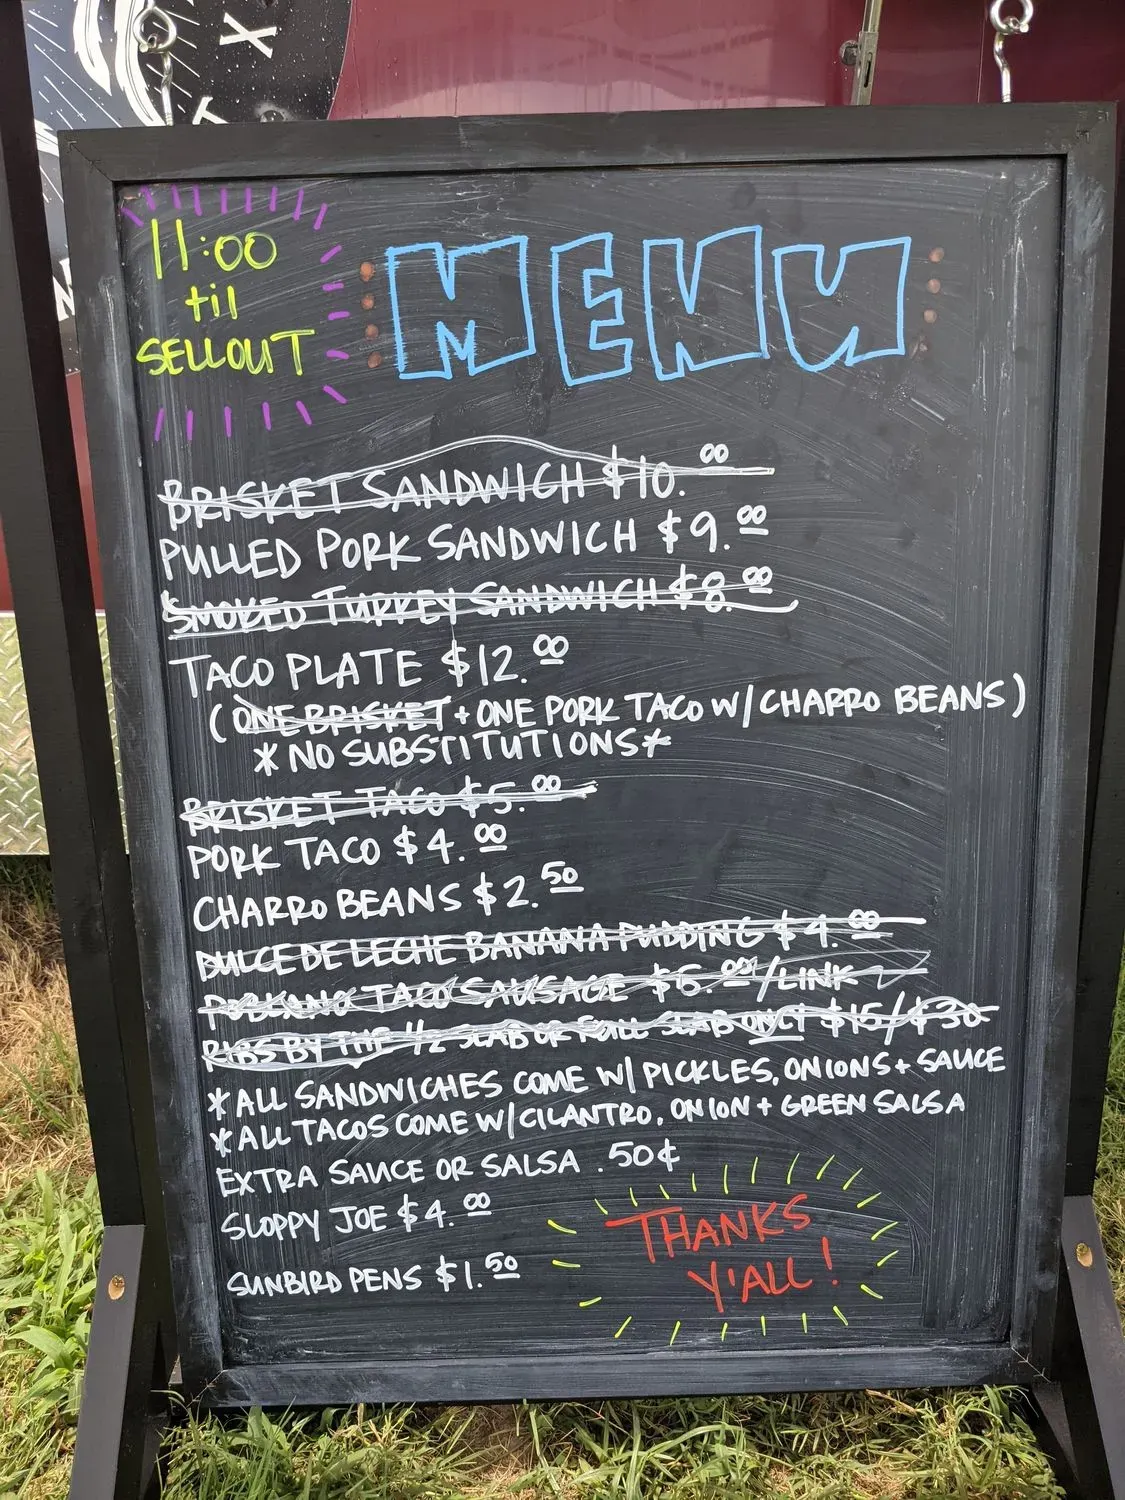 X
T
N
11:00
til
SELLOUT
MENU
BRISKET SANDWICH $10.00
PULLED PORK SANDWICH $9.00
SMOKED TURKEY SANDWICH $8.00
TACO PLATE $12.00
(ONE BRISKET + ONE PORK TACO W/ CHARRO BEANS)
*NO SUBSTITUTIONS*
BRISKET TACO $5.00
PORK TACO $4.00
CHARRO BEANS $2.50
DULCE DE LECHE BANANA PUDDING $4.00
POBLANO TACO SAUSAGE $6.00/LINK
RIBS BY THE 1/2 SLAB OR FULL SLAB ONLY $15/$30
*ALL SANDWICHES COME W/ PICKLES, ONIONS + SAUCE
*ALL TACOS COME W/ CILANTRO, ONION + GREEN SALSA
EXTRA SAUCE OR SALSA .50¢
SLOPPY JOE $4.00
SUNBIRD PENS $1.50
THANKS
Y'ALL!